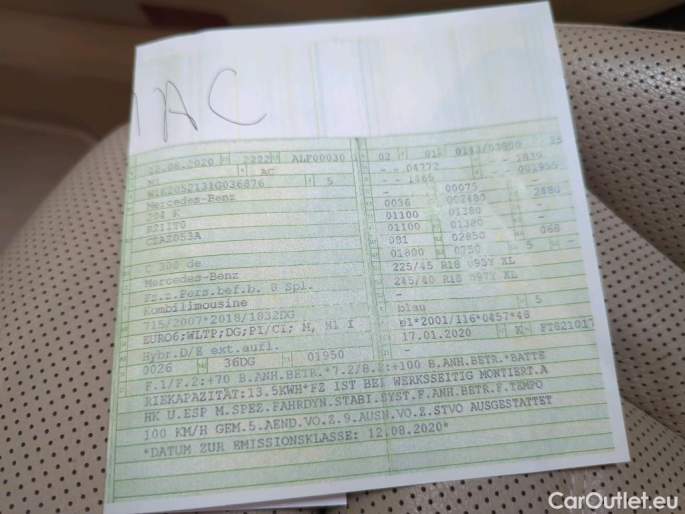 AC
.06.2020 2222 ALF00030
M1 AC
5
Mercedes-Benz
204 K
R2IIT0
CZAZ053A
300 de
Mercedes-Benz
Fz.z.Pers.bef.b. 8 Spl.
Kombilimousine
715/2007*2018/1832DG
EURO6;WLTP;DG;PI/CI; M, N1 I
Hybr.D/E ext.aufl.
0026 36DG 01950
02 01 0143/03800
- - 04772 - - 1839
- - 1466 - 001955
- 00075
0036 002480 2480
01100 01380 -
01100 01380 -
081 02850 068
01800 0750 5 -
225/45 R18 095Y XL
245/40 R18 097Y XL
-
blau 5
e1*2001/116*0457*48
17.01.2020 K
F.1/F.2:+70 B.ANH.BETR.*7.2/8.2:+100 B.ANH.BETR.*BATTE
RIEKAPAZITÄT:13.5KWH*FZ IST BEI WERKSSEITIG MONTIERT.A
HK U.ESP M.SPEZ.FAHRDYN.STABI.SYST.F.ANH.BETR.F.TEMPO
100 KM/H GEM.5.AEND.VO.Z.9.AUSN.VO.Z.STVO AUSGESTATTET
*DATUM ZUR EMISSIONSKLASSE: 12.08.2020*
CarOutlet.eu